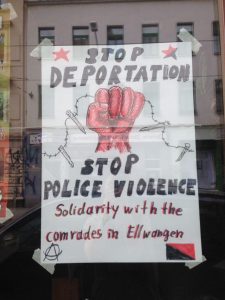 STOP
DEPORTATION
STOP
POLICE VIOLENCE
Solidarity with the
comrades in Ellwangen